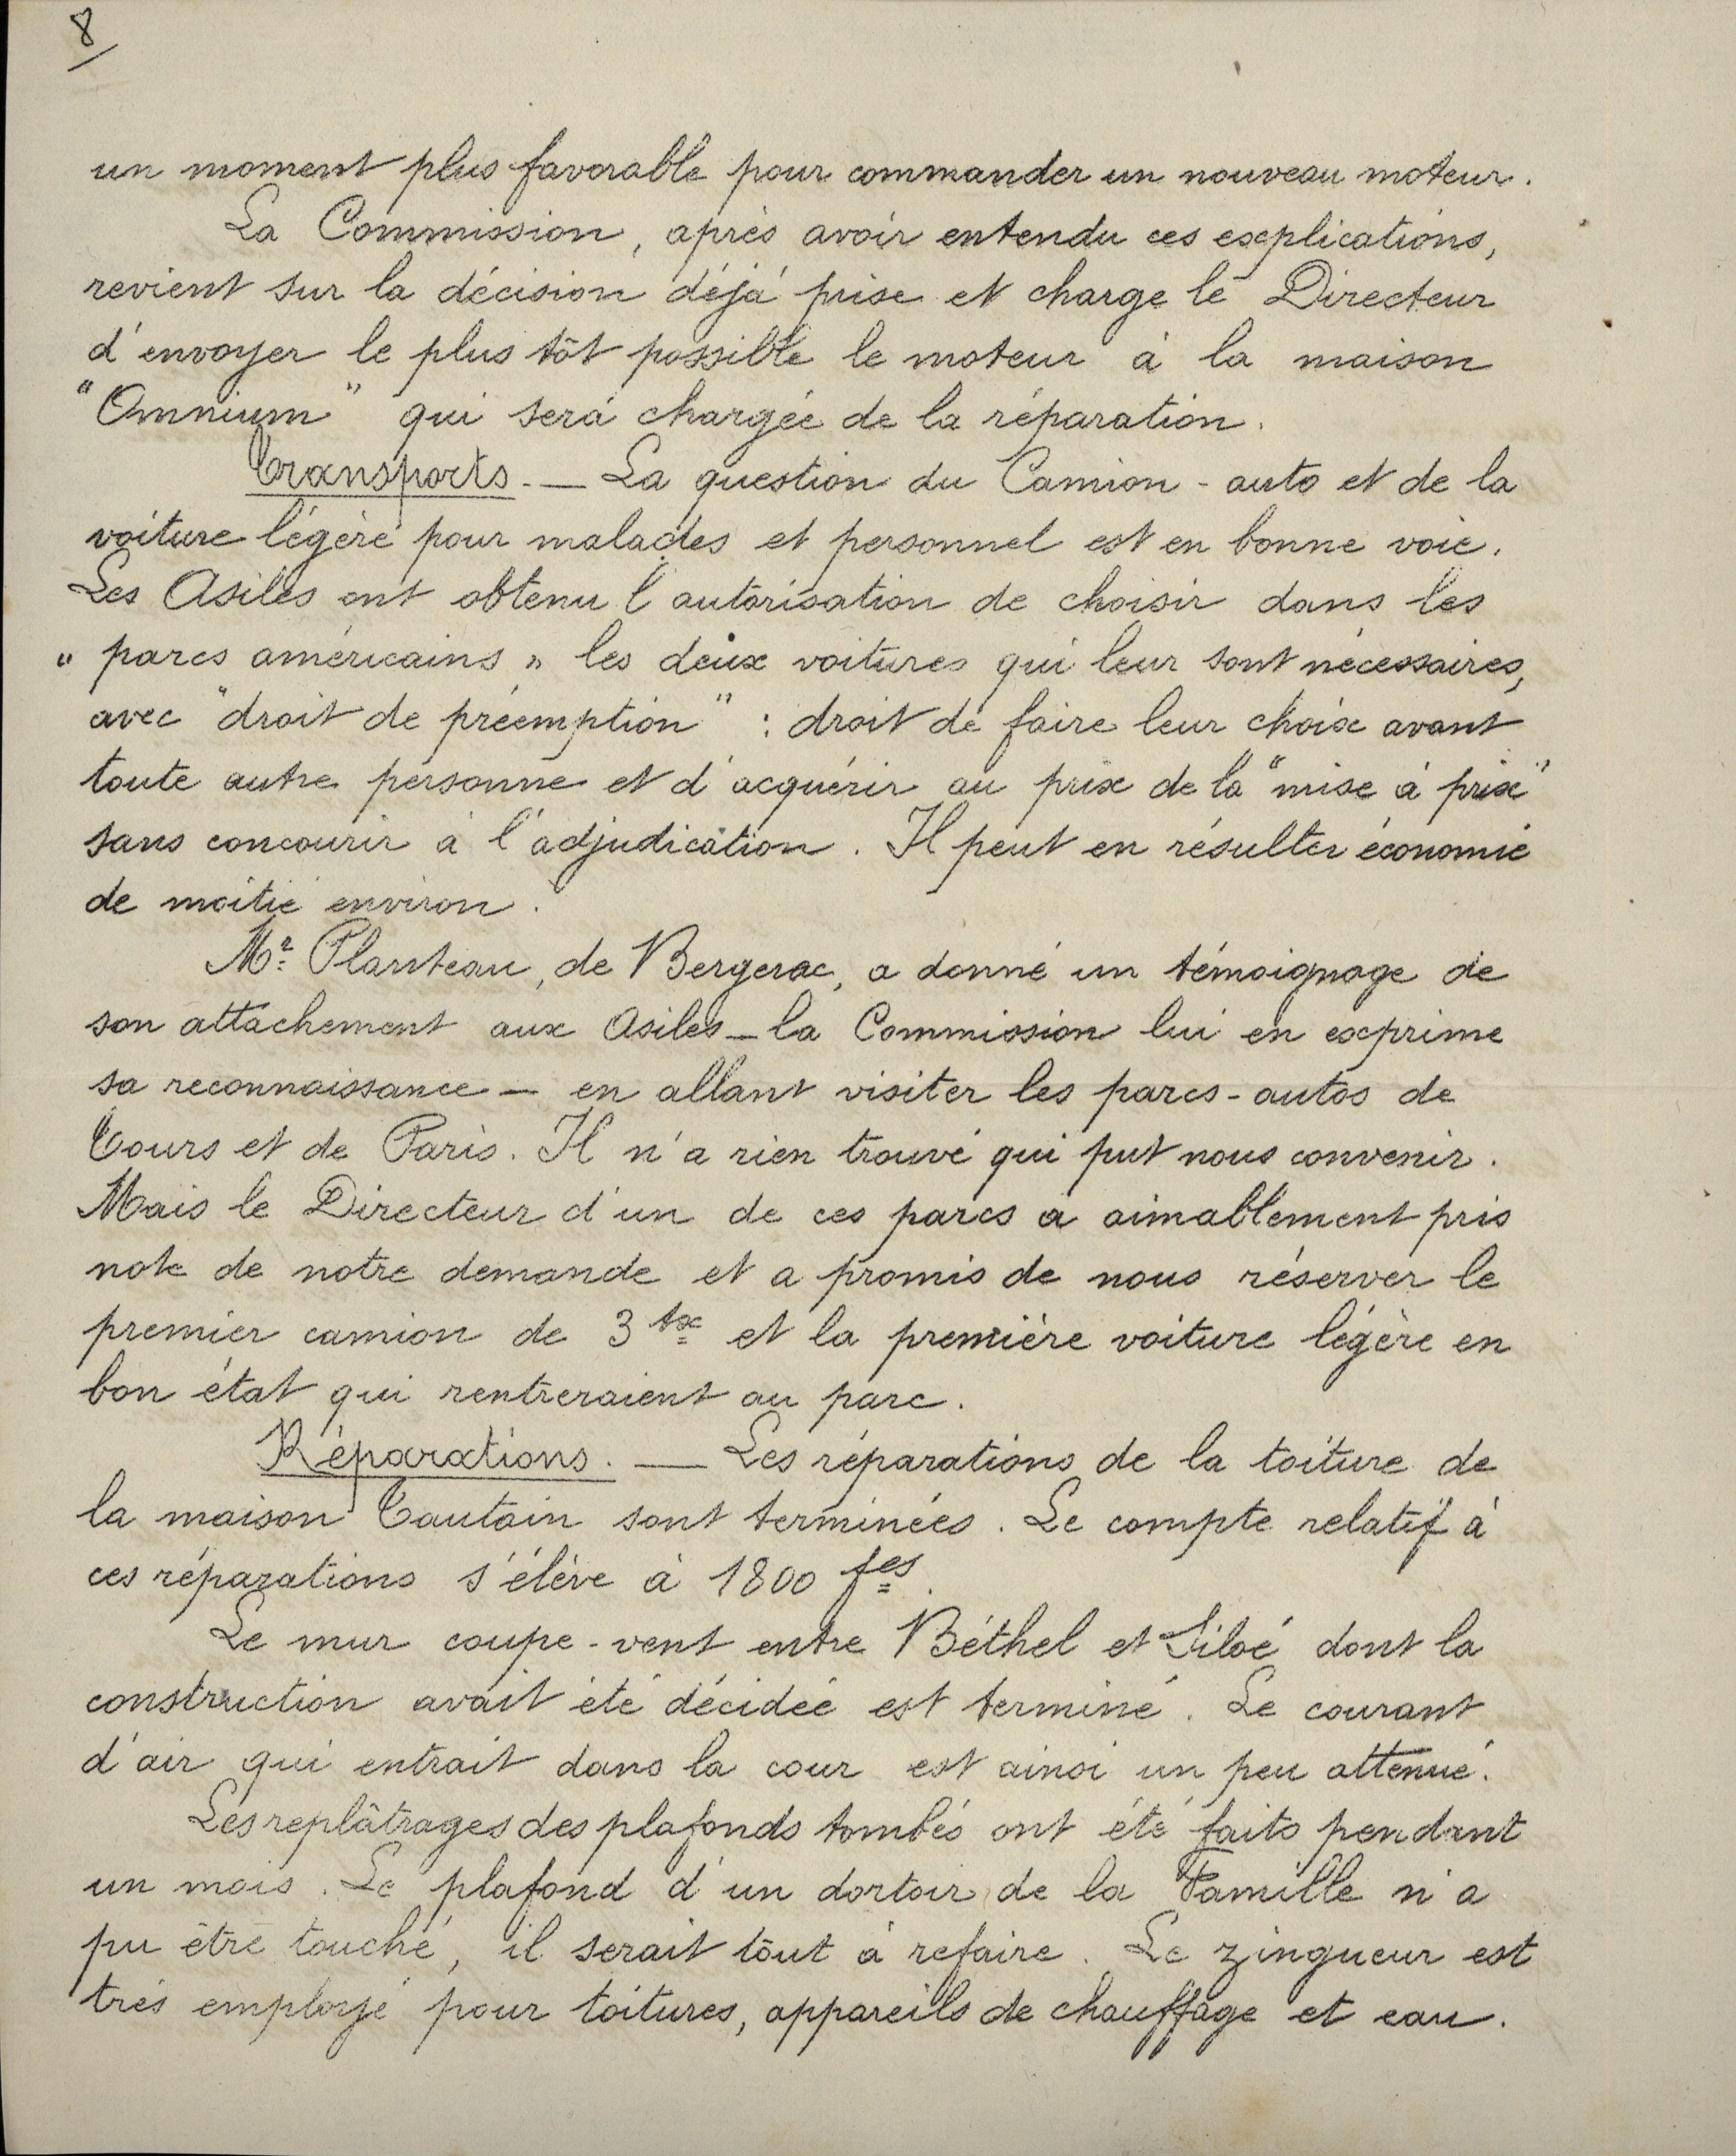 8
un moment plus favorable pour commander un nouveau moteur.
La Commission, après avoir entendu ces explications,
revient sur la décision déjà prise et charge le Directeur
d'envoyer le plus tôt possible le moteur à la maison
"Omnium" qui sera chargée de la réparation.
Transports. — La question du Camion-auto et de la
voiture légère pour malades et personnel est en bonne voie.
Les Asiles ont obtenu l'autorisation de choisir dans les
« parcs américains » les deux voitures qui leur sont nécessaires,
avec "droit de préemption" : droit de faire leur choix avant
toute autre personne et d'acquérir au prix de la "mise à prix"
sans concourir à l'adjudication. Il peut en résulter économie
de moitié environ.
Mr Planteau, de Bergerac, a donné un témoignage de
son attachement aux Asiles — la Commission lui en exprime
sa reconnaissance — en allant visiter les parcs-autos de
Tours et de Paris. Il n'a rien trouvé qui put nous convenir.
Mais le Directeur d'un de ces parcs a aimablement pris
note de notre demande et a promis de nous réserver le
premier camion de 3 tx et la première voiture légère en
bon état qui rentreraient au parc.
Réparations. — Les réparations de la toiture de
la maison Tautain sont terminées. Le compte relatif à
ces réparations s'élève à 1800 fcs.
Le mur coupe-vent entre Béthel et Siloé dont la
construction avait été décidée est terminé. Le courant
d'air qui entrait dans la cour est ainsi un peu atténué.
Les replâtrages des plafonds tombés ont été faits pendant
un mois. Le plafond d'un dortoir de la Famille n'a
pu être touché, il serait tout à refaire. Le zingueur est
très employé pour toitures, appareils de chauffage et eau.